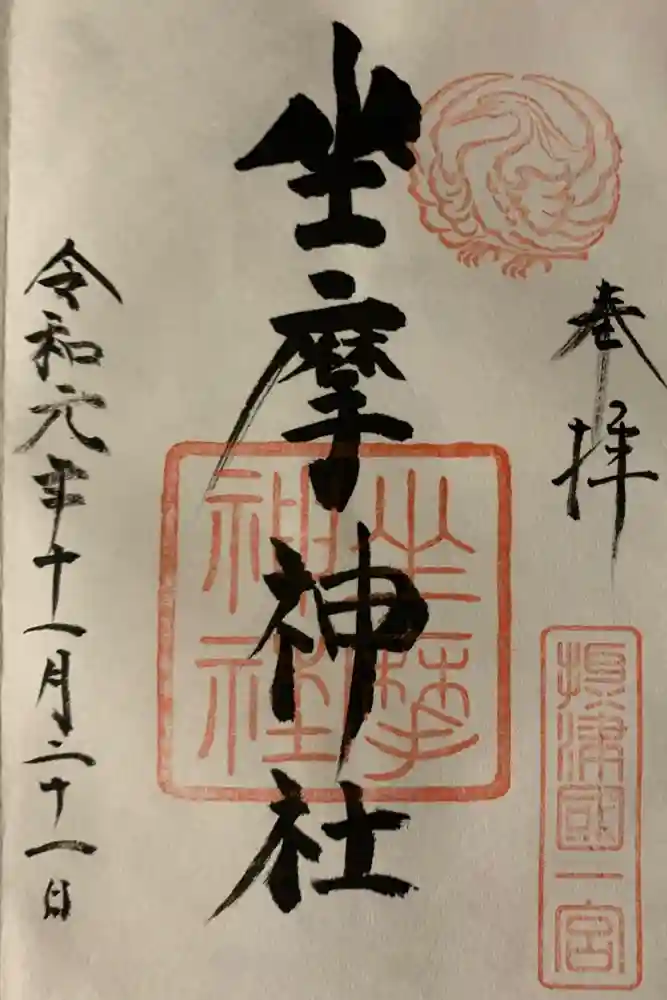 奉拝
摂津國一宮
坐摩神社
坐摩神社
令和元年十一月二十一日